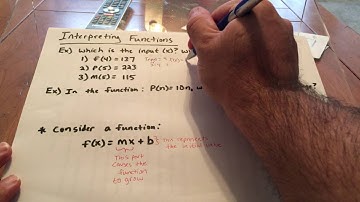 Interpreting Functions
Ex) Which is the input (x)? w
1) f(4) = 127
2) P(5) = 223
3) M(5) = 115
Ex) In the function: P(n) = 18n, w
* Consider a function:
f(x) = mx + b
This represents
the initial value
This part
causes the
function
to grow